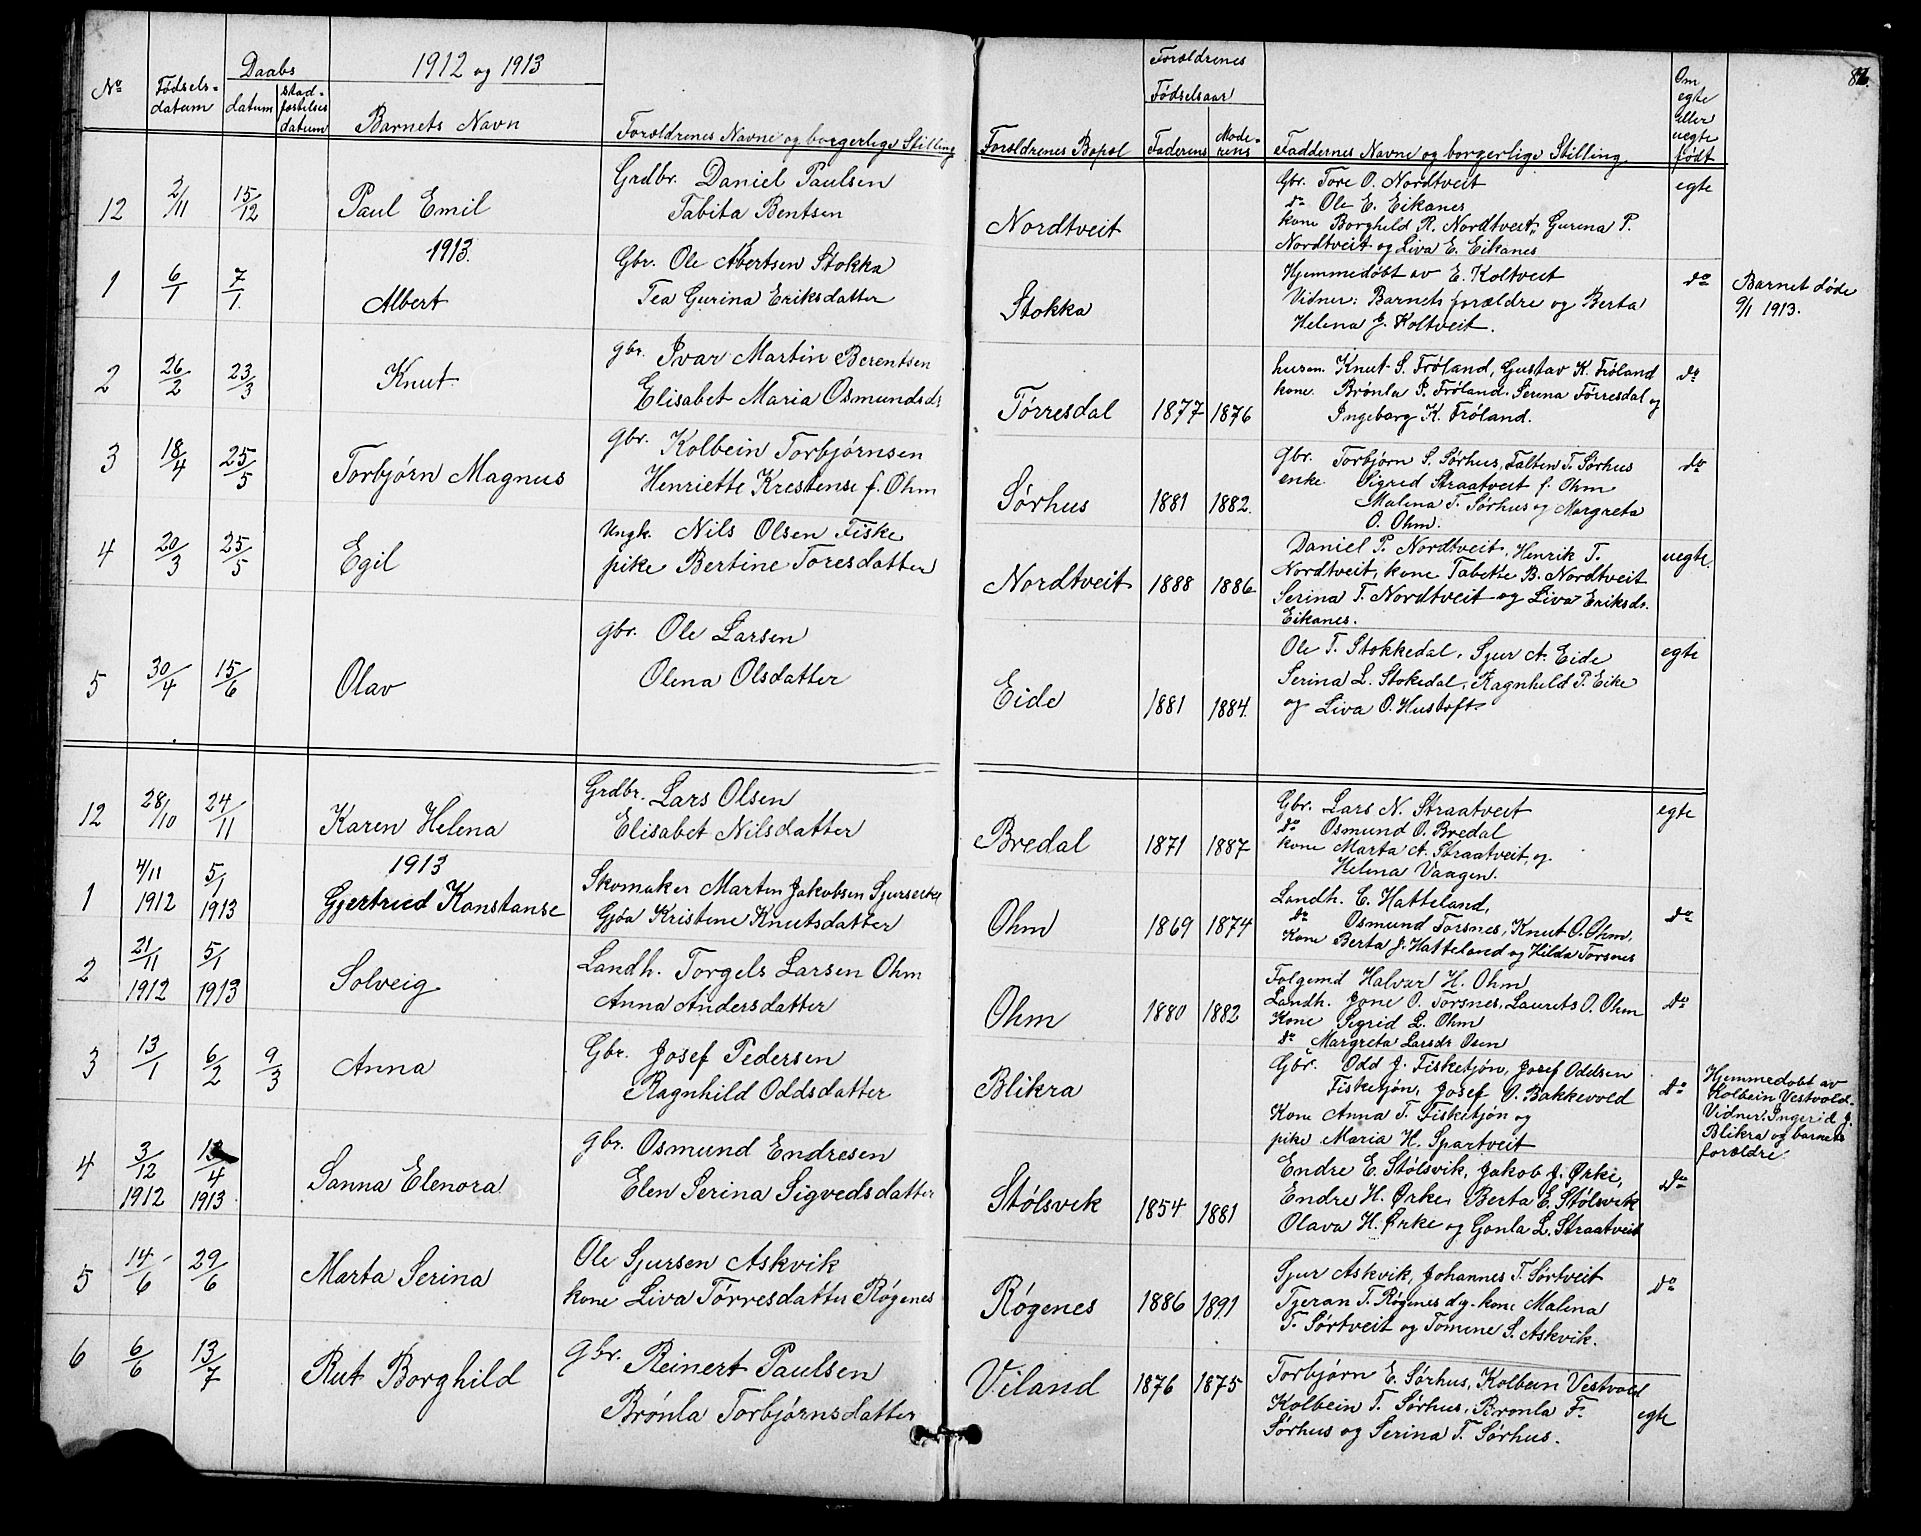 1912 og 1913
82.
No
Fødsels-
datum
Daabs
datum
stad-
fæstelses
datum
Barnets Navn
Forældrenes Navne og borgerlige Stilling
Forældrenes Bopæl
Forældrenes
Fødselsaar
Faderens
Mode-
rens
Faddernes Navne og borgerlige Stilling
Om
egte
eller
uegte
født
12 2/11 15/12 Paul Emil
Grdbr. Daniel Paulsen
Tabita Bentsen
Nordtveit
Gbr. Tore O. Nordtveit
do Ole E. Eikanes
kone Borghild R. Nordtveit, Gurina P.
Nordtveit og Liva E. Eikanes
egte
1913.
1 6/1 7/1. Albert
Gbr. Ole Abertsen Stokka
Tea Gurina Eriksdatter
Stokka
Hjemmedøbt av E. Koltveit
Vidner: Barnets forældre og Berta
Helena E. Koltveit.
do
Barnet døde
9/1 1913.
2 26/2 23/3 Knut
gbr. Ivar Martin Berentsen
Elisabet Maria Osmundsdr
Tørresdal 1877 1876
husm. Knut S. Frøland, Gustav K. Frøland
kone. Brønla P. Frøland. Serina Tørresdal og
Ingeborg K. Frøland.
do
3 18/4 25/5 Torbjørn Magnus
gbr. Kolbein Torbjørnsen
Henriette Krestense f. Ohm
Sørhus 1881 1882.
gbr. Torbjørn S. Sørhus, Falten T. Sørhus
enke Sigrid Straatveit f. Ohm
Malena T. Sørhus og Margreta
O. Ohm.
do
4 20/3 25/5 Egil
Ungk. Nils Olsen Fiske
pike Bertine Toresdatter
Nordtveit 1888 1886
Daniel P. Nordtveit, Henrik T.
Nordtveit, kone Tabette B. Nordtveit
Serina T. Nordtveit og Liva Eriksdr.
Eikanes.
uegte.
5 30/4 15/6 Olav
gbr. Ole Larsen
Olena Olsdatter
Eide 1881 1884.
Ole T. Stokkedal, Sjur A. Eide
Serina L. Stokedal, Ragnhild P. Eike
og Liva O. Hustoft.
egte
12 28/10 24/11 Karen Helena
Grdbr. Lars Olsen
Elisabet Nilsdatter
Bredal 1871 1887
Gbr. Lars N. Straatveit
do Osmund O. Bredal
kone Marta A. Straatveit, og
Helena Vaagen.
egte
1913
1 4/11 1912 5/1 1913 Gjertried Konstanse
Skomaker Marten Jakobsen
Gjøa Kristene Knutsdatter
Ohm 1869 1874
Landh. E. Hatteland,
do Osmund Torsnes, Knut O. Ohm,
Kone Berta J. Hatteland og Hilda Torsnes
do
2 21/11 1912 5/1 1913 Solveig
Landh. Torgels Larsen Ohm
Anna Andersdatter
Ohm 1880 1882
Folgemd Halvar H. Ohm
Landh. Jone O. Torsnes, Laurets O. Ohm
Kone Segrid L. Ohm
do Margreta Larsdr Osen
do
3 13/1 6/2 9/3 Anna
Gbr. Josef Pedersen
Ragnhild Oddsdatter
Blikra
Gbr. Odd J. Fisketjøn, Josef Oddsen
Fisketjøn, Josef O. Bakkevold
Kone Anna T. Fisketjøn og
pike Maria H. Spartveit
do
Hjemmedøbt av
Kolbein Vestvold.
Vidner: Ingerid J.
Blikra og barnets
forældre
4 3/12 1912 13/4 1913. Sanna Elenora
gbr. Osmund Endresen
Elen Serina Sigvedsdatter
Stølsvik 1854 1881
Endre E. Stølsvik, Jakob J. Ørke,
Endre H. Ørke, Berta E. Stølsvik
Olava H. Ørke og Gonla L. Straatveit
do
5 14/6 29/6 Marta Serina
Ole Sjursen Askvik
kone Liva Tørresdatter Røgenes
Røgenes 1886 1891
Sjur Askvik, Johannes T. Sørtveit
Tjeran T. Røgenes og kone Malena
T. Sørtveit og Tomine S. Askvik.
do
6 6/6 13/7 Rut Borghild
gbr. Reinert Paulsen
Brønla Torbjørnsdatter
Viland 1876 1875
Torbjørn E. Sørhus, Kolbein Vestvold
Kolbein T. Sørhus, Bronla F.
Sørhus og Serina T. Sørhus.
egte